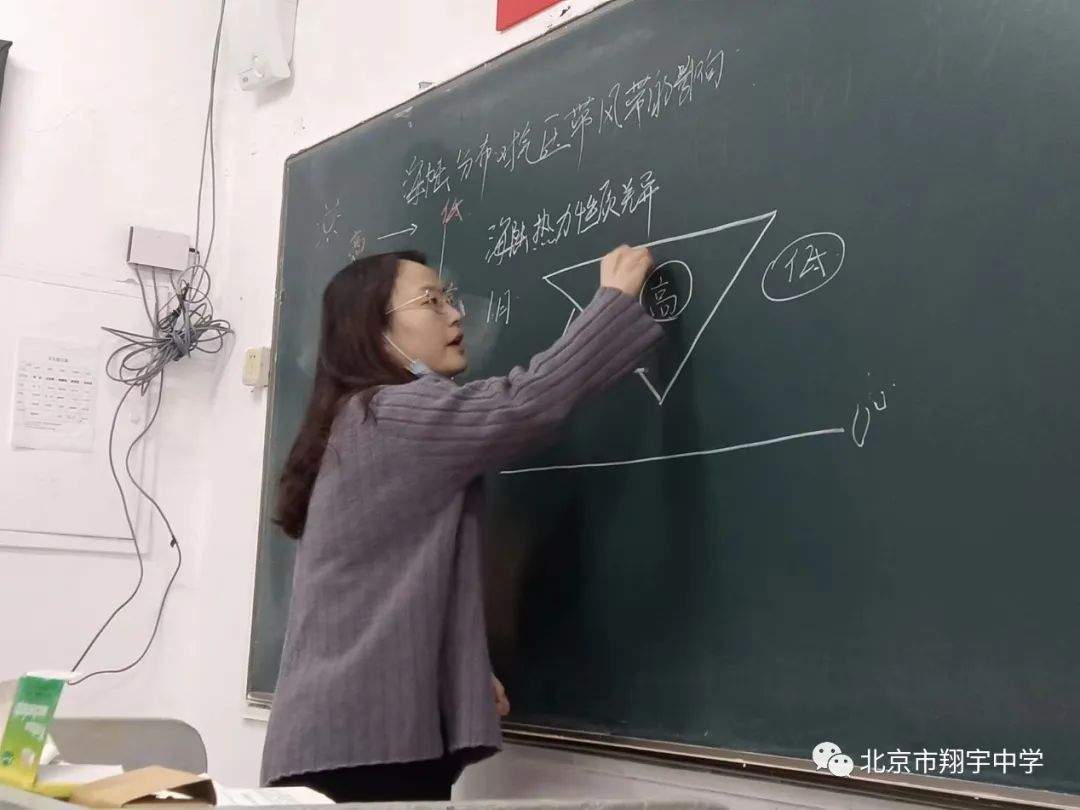 海陆分布对气压带风带的影响
高 → 低
海陆热力性质差异
1月
高
低
0°
北京市翔宇中学